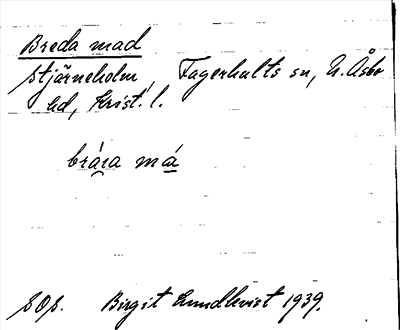 Breda mad
Stjärneholm, Fagerhults sn, N. Åsbo
hd, Krist. l.
brá̯ra má̲
SOS. Birgit Lundkvist 1939.